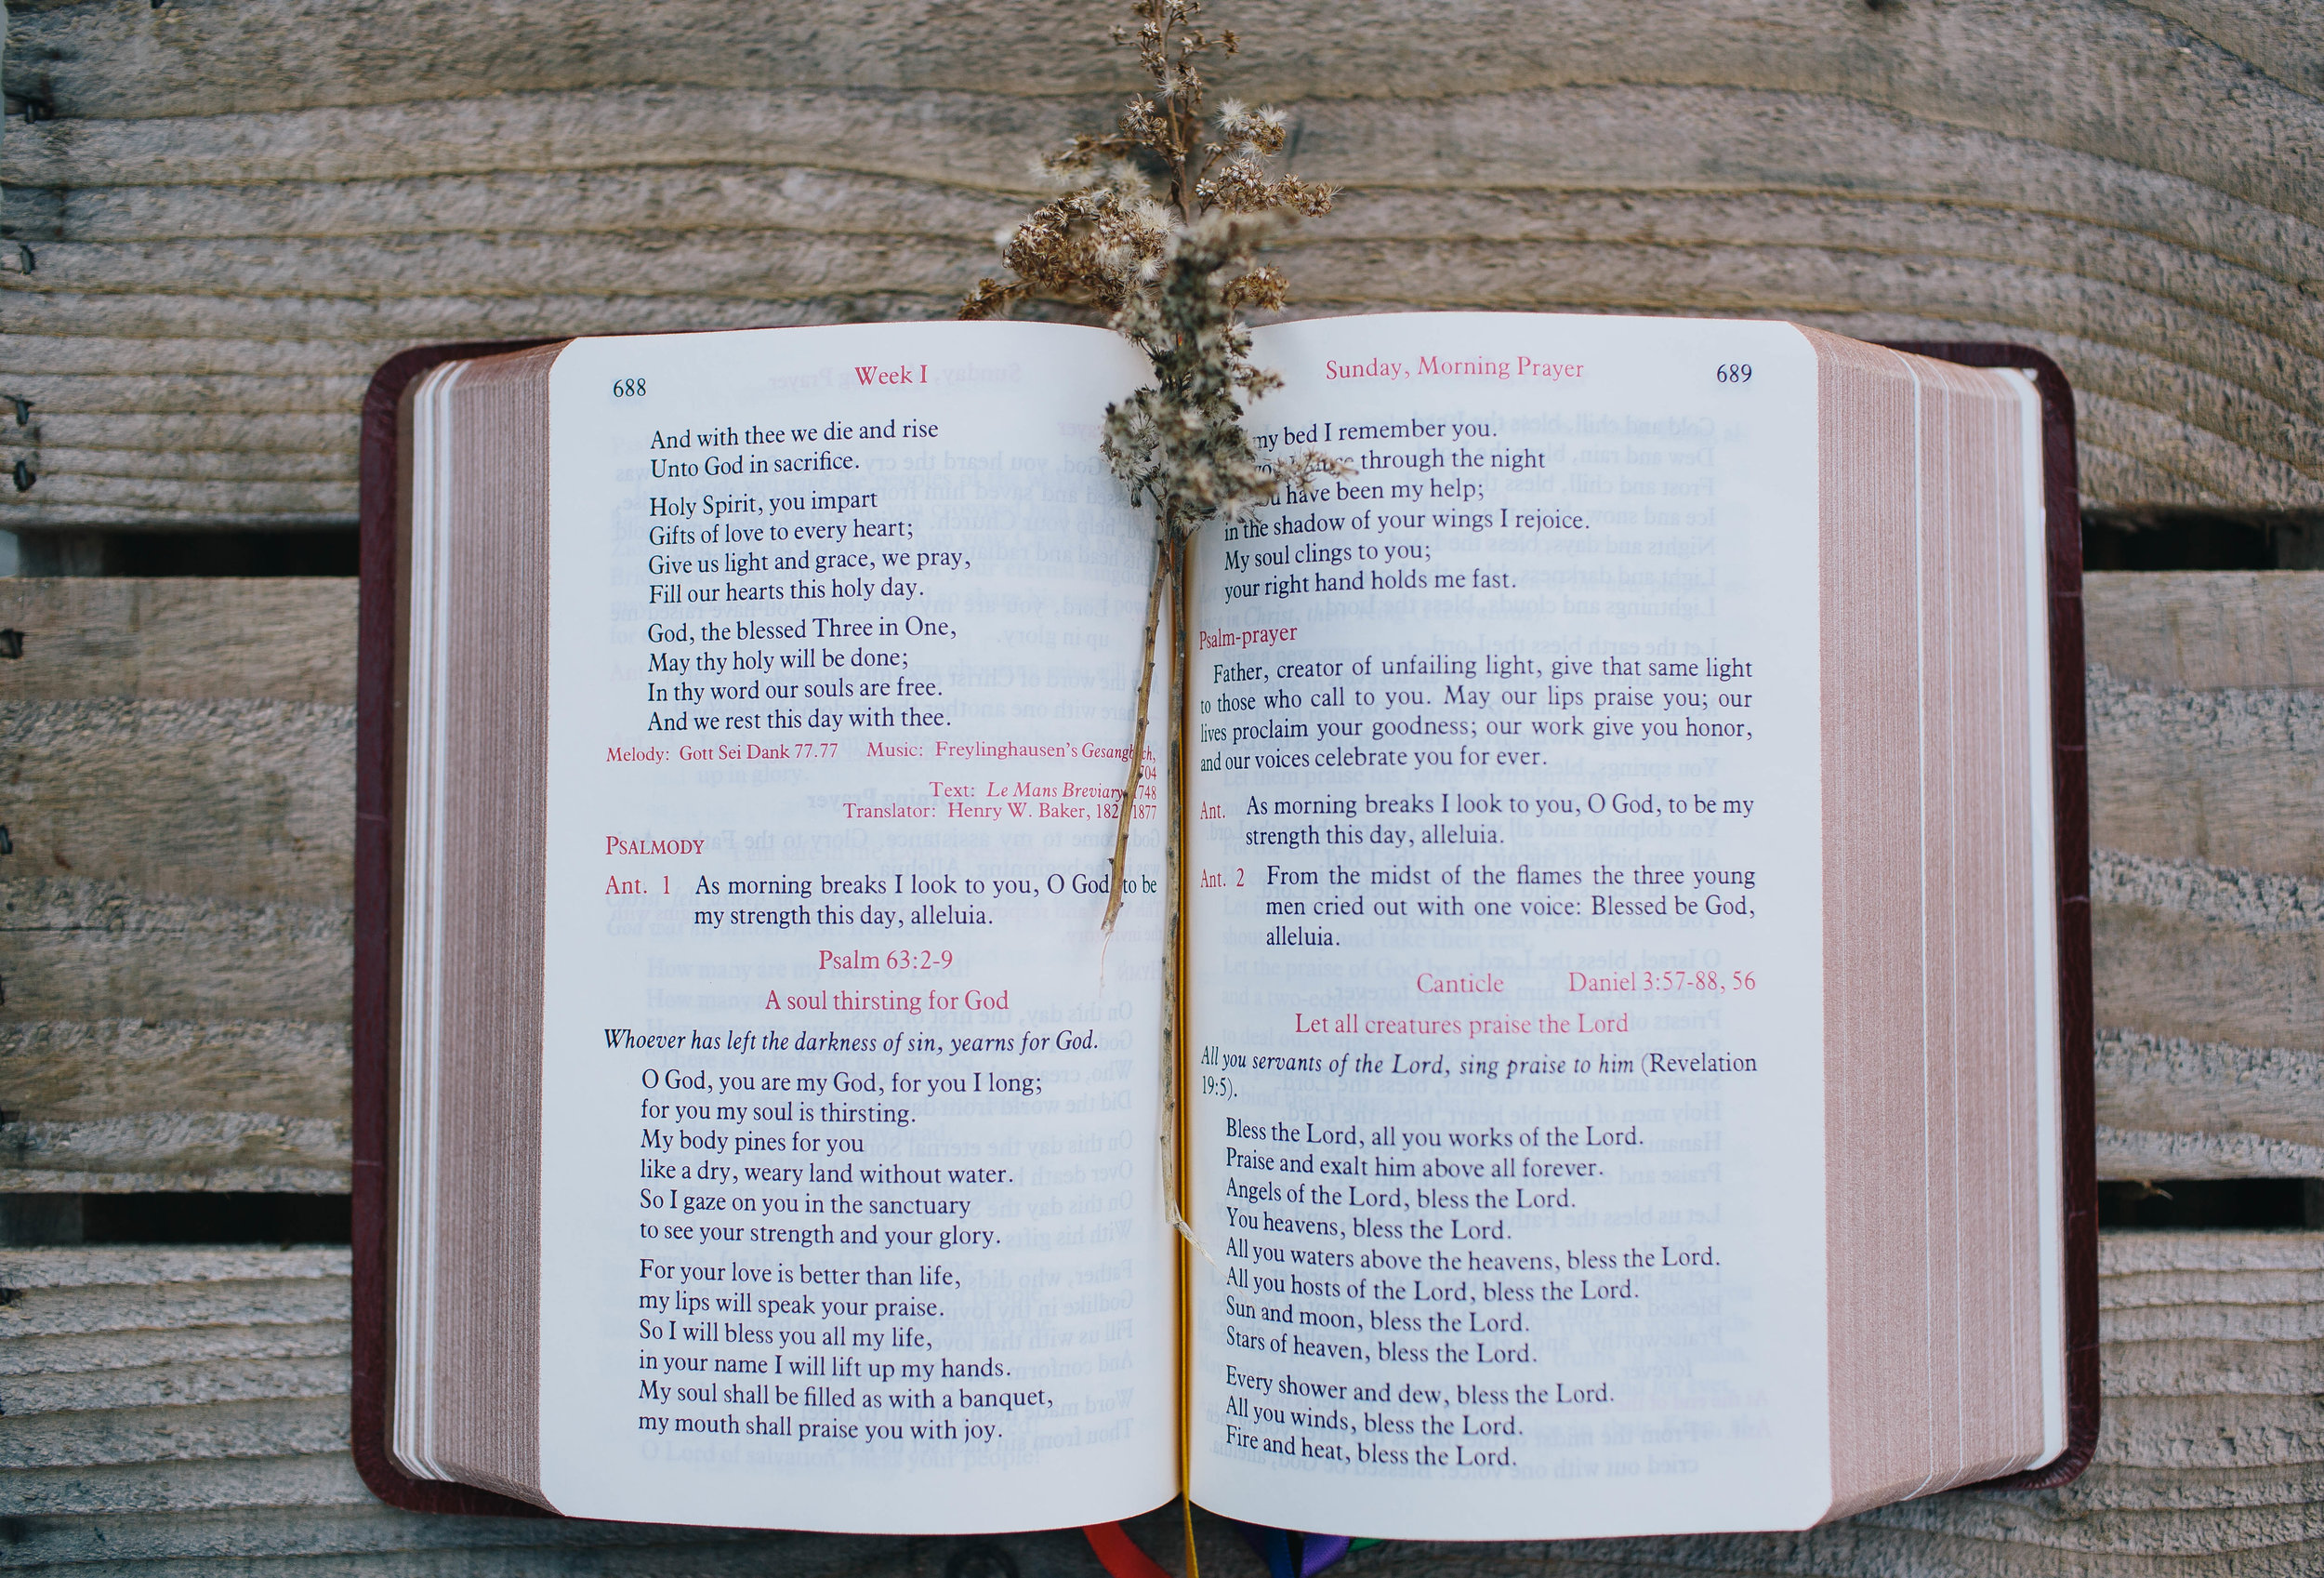 688
Week I
And with thee we die and rise
Unto God in sacrifice.
Holy Spirit, you impart
Gifts of love to every heart;
Give us light and grace, we pray,
Fill our hearts this holy day.
God, the blessed Three in One,
May thy holy will be done;
In thy word our souls are free.
And we rest this day with thee.
Melody: Gott Sei Dank 77.77 Music: Freylinghausen's
Text: Le Mans Breviary,
Translator: Henry W. Baker, 1877
PSALMODY
Ant. 1 As morning breaks I look to you, O God, to be
my strength this day, alleluia.
Psalm 63:2-9
A soul thirsting for God
Whoever has left the darkness of sin, yearns for God.
O God, you are my God, for you I long;
for you my soul is thirsting.
My body pines for you
like a dry, weary land without water.
So I gaze on you in the sanctuary
to see your strength and your glory.
For your love is better than life,
my lips will speak your praise.
So I will bless you all my life,
in your name I will lift up my hands.
My soul shall be filled as with a banquet,
my mouth shall praise you with joy.
Sunday, Morning Prayer
689
my bed I remember you.
through the night
have been my help;
in the shadow of your wings I rejoice.
My soul clings to you;
your right hand holds me fast.
Psalm-prayer
Father, creator of unfailing light, give that same light
to those who call to you. May our lips praise you; our
lives proclaim your goodness; our work give you honor,
and our voices celebrate you for ever.
Ant. As morning breaks I look to you, O God, to be my
strength this day, alleluia.
Ant. 2 From the midst of the flames the three young
men cried out with one voice: Blessed be God,
alleluia.
Canticle Daniel 3:57-88, 56
Let all creatures praise the Lord
All you servants of the Lord, sing praise to him (Revelation
19:5).
Bless the Lord, all you works of the Lord.
Praise and exalt him above all forever.
Angels of the Lord, bless the Lord.
You heavens, bless the Lord.
All you waters above the heavens, bless the Lord.
All you hosts of the Lord, bless the Lord.
Sun and moon, bless the Lord.
Stars of heaven, bless the Lord.
Every shower and dew, bless the Lord.
All you winds, bless the Lord.
Fire and heat, bless the Lord.